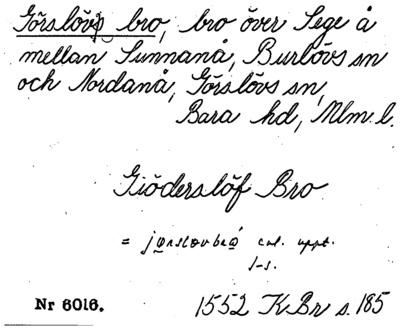 Görslövs bro, bro över Sege å
mellan Sunnanå, Burlövs sn
och Nordanå, Görslövs sn,
Bara hd, Mlm. l.
Giöderslöf Bro
= jørslovbro enl. uppt.
1552 K Br s. 185
Nr 6016.